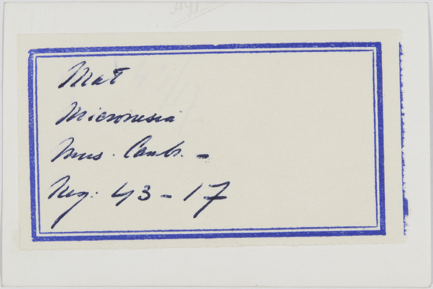 Mat
Micronesia
Mus. Camb. -
Neg: 43-17